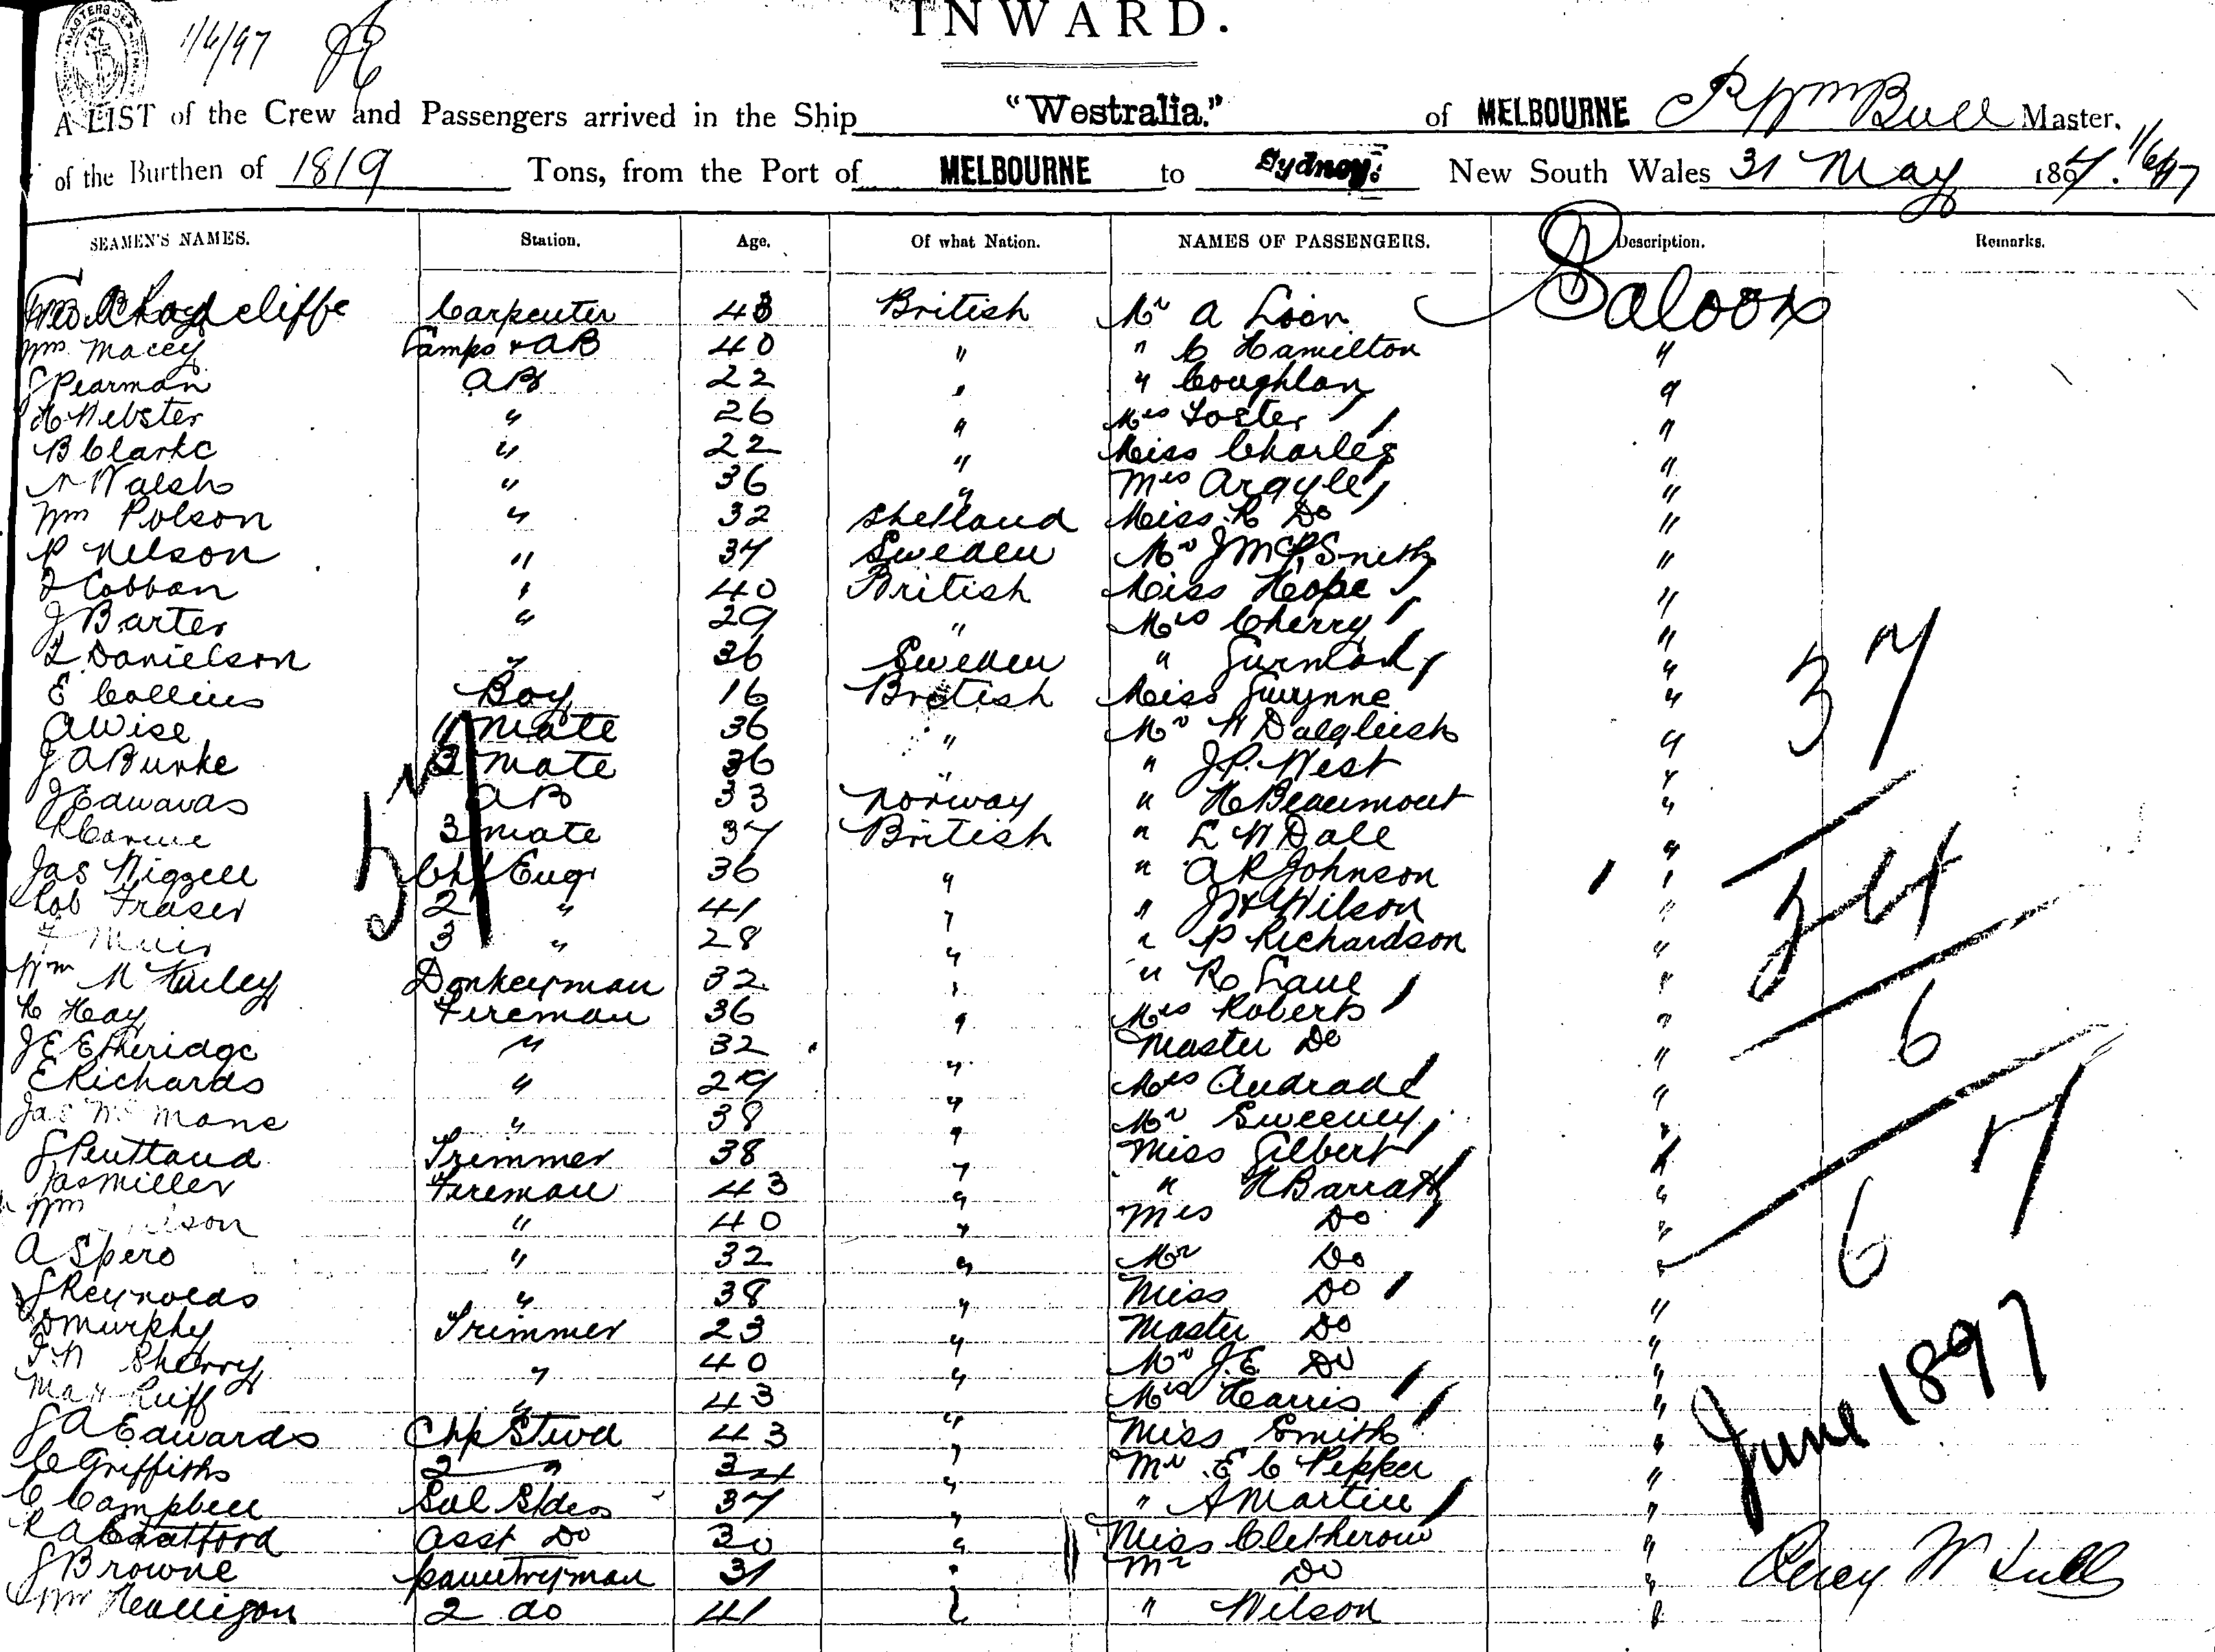 INWARD.
1/6/97
A LIST of the Crew and Passengers arrived in the Ship "Westralia." of MELBOURNE Bull Master.
of the Burthen of 1819 Tons, from the Port of MELBOURNE to Sydney: New South Wales 31 May 1897. 1/6/97
SEAMEN'S NAMES. Station. Age. Of what Nation. NAMES OF PASSENGERS. Description. Remarks.
Carpenter 43 British Mr A Lion Saloon
Wm Macey Lamps & AB 40 " " C Hamilton "
J Pearman AB 22 " " Coughlan "
H Webster " 26 " Mrs Foster "
B Clarke " 22 " Miss Charles "
N Walsh " 36 " Mrs Argyle "
Wm Polson " 32 Shetland Miss R Do "
P Nelson " 37 Sweden Mr J McP Smith "
J Cobban " 40 British Miss Hope "
J Barter " 29 " Mrs Cherry "
J Danielson " 36 Sweden " "
E Collins Boy 16 British Miss Gwynne " 37
A Wise 1 Mate 36 " Mr W Dalgleish "
J A Burke 2 Mate 36 " " J.P. West "
J Edwards AB 33 Norway " H Beaumont "
3 Mate 37 British " L W Dale "
57
Jas Wiggell Chf Eng 36 " " A R Johnson " 24
Rob Fraser 2 " 41 " " J H Wilson "
F Muir 3 " 28 " " P Richardson "
Wm Donkeyman 32 " " R Lane "
R Hay Fireman 36 " Mrs Roberts " 6
J E Etheridge " 32 " Master Do "
E Richards " 29 " Mrs Andrade "
Jas " 38 " Mr Sweeney "
J Pentland Trimmer 38 " Miss Gilbert "
Jas Miller Fireman 43 " " N Barratt "
Wm " 40 " Mrs Do " 67
A Spero " 32 " Mr Do "
J Reynolds " 38 " Miss Do "
D Murphy Trimmer 23 " Master Do "
Sherry " 40 " Mr J.E. Do "
Max Ruff " 43 " Mrs Harris "
J A Edwards Chf Stwd 43 " Miss Smith " June 1897
C Griffiths 2 " 34 " Mr E C Pepper "
C Campbell Sal Stdes 37 " " A Martin "
R A Stratford Asst Do 30 " Miss Cletherow "
J Browne Pantryman 31 " Mr Do "
Wm 2 do 41 " " Wilson "